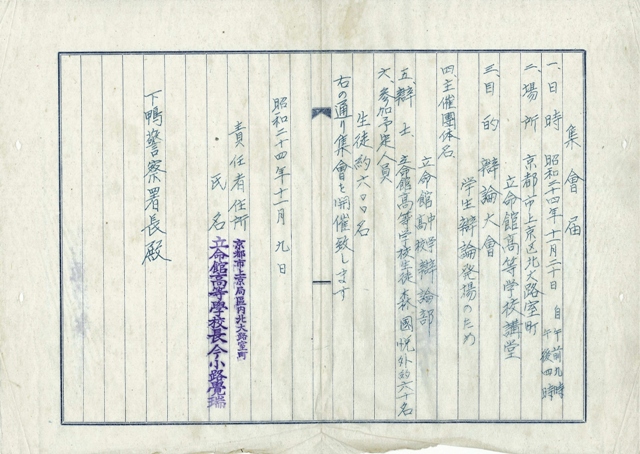 集會届
一、日時 昭和二十四年十一月二十日 自午前九時
至午後四時
二、場所 京都市上京区北大路室町
立命館高等学校講堂
三、目的 辯論大會
学生辯論発揚のため
四、主催團体名
立命館中学高校辯論部
五、辯士 立命館高等学校生徒 森國悦外約六十名
六、参加予定人員
生徒約六〇〇名
右の通り集會を開催致します
昭和二十四年十一月九日
責任者住所 京都市上京局區内北大路室町
氏名 立命館高等學校長今小路覺瑞
下鴨警察署長殿